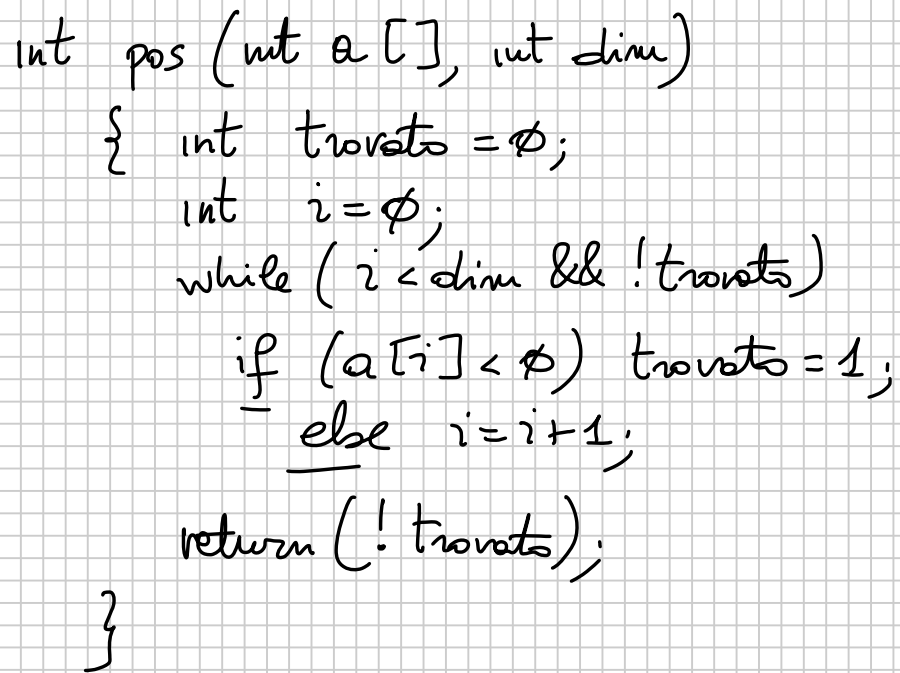 int pos (int a [], int dim)
{ int trovato = 0;
int i = 0;
while ( i < dim && ! trovato)
if (a [i] < 0) trovato = 1;
else i = i + 1;
return (! trovato);
}